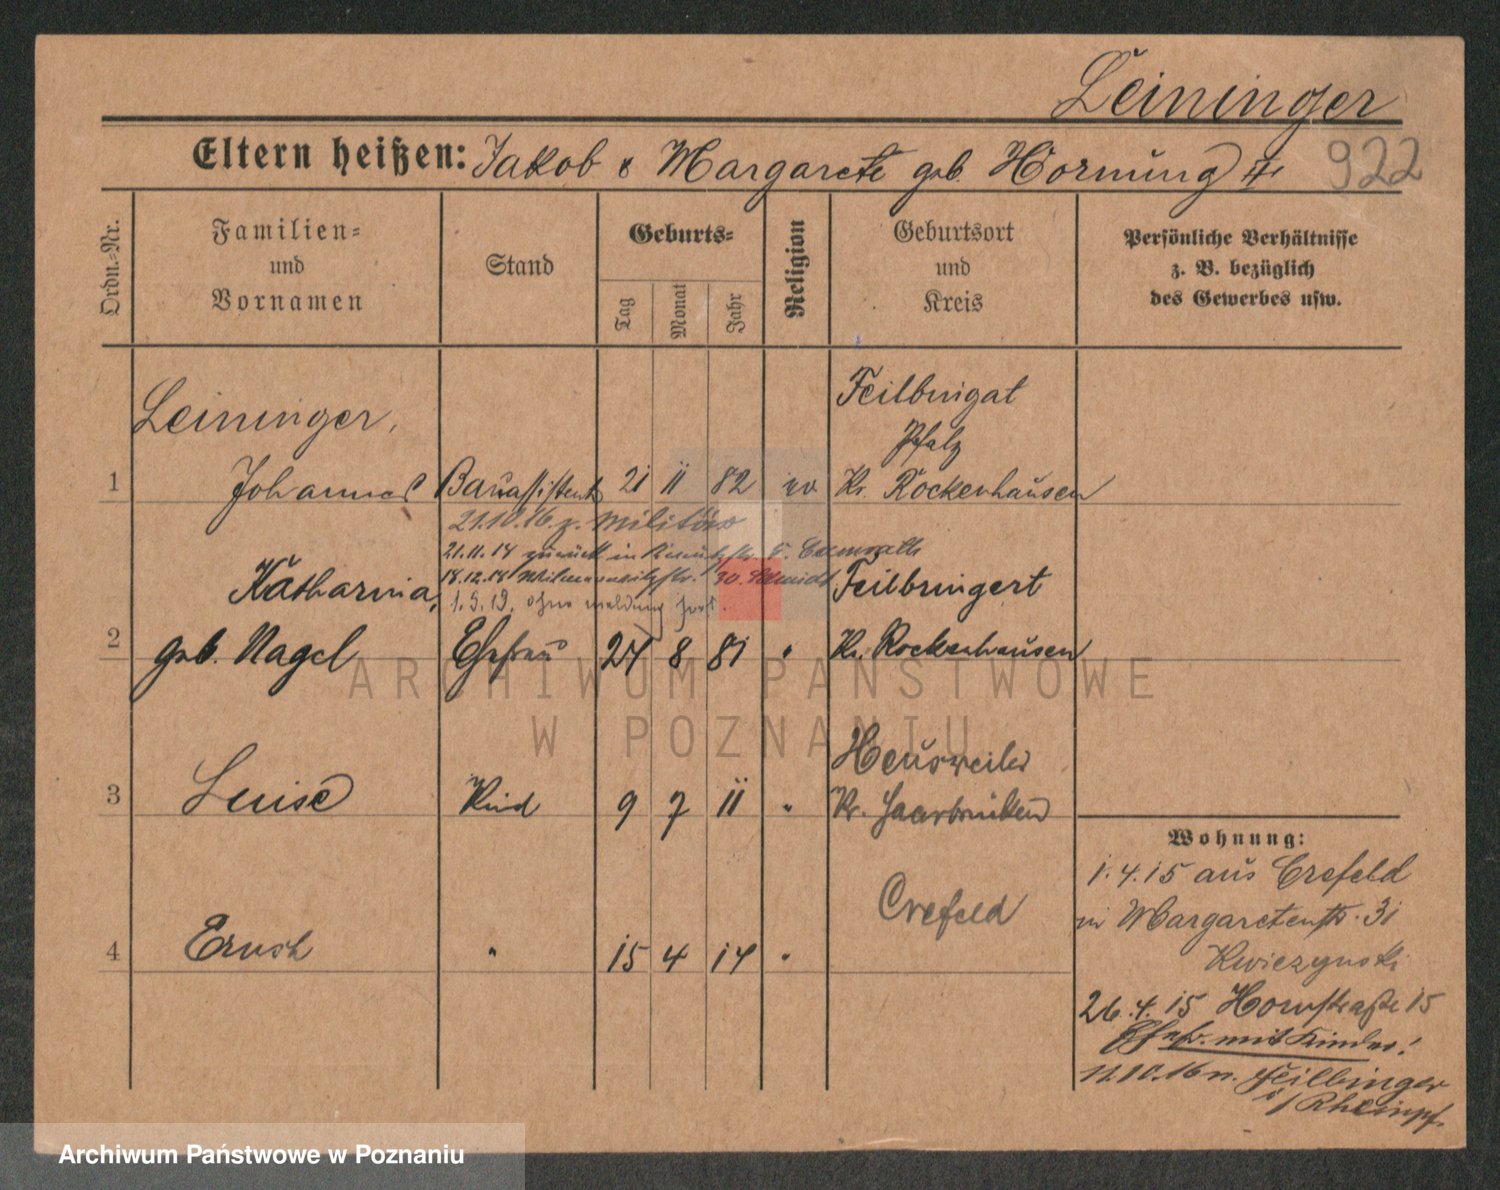 Leininger
Eltern heißen: Jakob & Margarete geb. Hornung
922
Ordn.-Nr.
Familien-
und
Vornamen
Stand
Geburts-
Tag
Monat
Jahr
Religion
Geburtsort
und
Kreis
Persönliche Verhältnisse
z. B. bezüglich
des Gewerbes usw.
Leininger,
Feilbingat
Pfalz
1 Johannes Bauassistent 21 11 82 ev Kr. Rockenhausen
21.10.16. z. Militär
21.11.14 zurück in
18.12.18 Schmidt
1.5.19. ohne meldung fort.
Katharina, Feilbingert
2 geb. Nagel Ehefrau 24 8 81 " Kr. Rockenhausen
Heusweiler
3 Luise Kind 9 7 11 " Kr. Saarbrücken
Crefeld
4 Ernst " 15 4 14 "
Wohnung:
1.4.15 aus Crefeld
in Margaretenstr. 31
Kwiczynski
26.4.15 Hornstraße 15
Ehefr. mit Kinder!
11.10.16 n. Feilbinger
i/Rheinpf.
ARCHIWUM PAŃSTWOWE
W POZNANIU
Archiwum Państwowe w Poznaniu